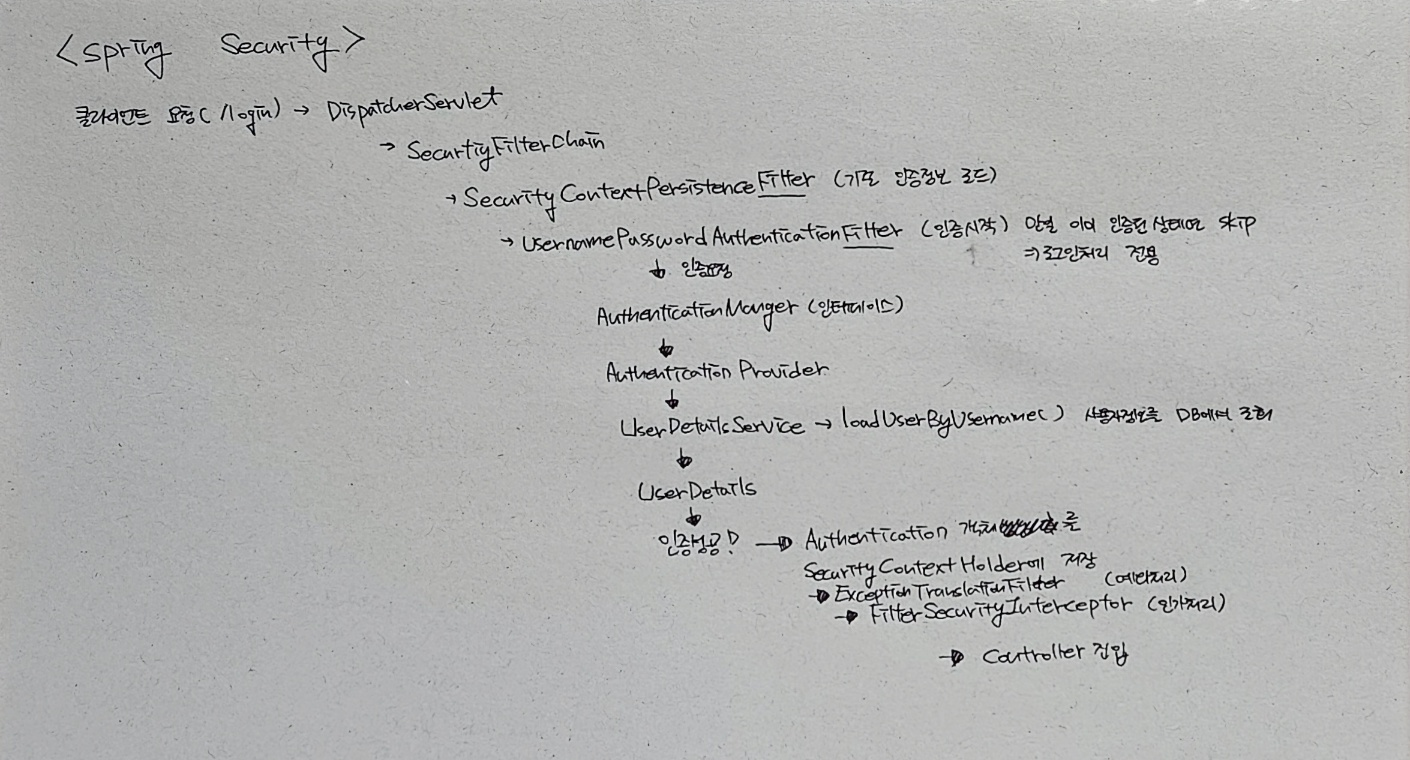 <Spring Security>
클라이언트 요청( /login) → DispatcherServlet
→ SecurtiyFilterChain
→ SecurityContextPersistenceFilter (기존 인증정보 로드)
→ UsernamePasswordAuthenticationFilter (인증시작) 만일 이미 인증된 상태면 skip
⇒ 로그인처리 전용
↓ 인증요청
AuthenticationManger (인터페이스)
↓
Authentication Provider
↓
UserDetailsService → loadUserByUsername( ) 사용자정보를 DB에서 조회
↓
UserDetails
↓
인증성공? → Authentication 객체를
SecurityContextHolder에 저장
→ ExceptionTranslationFilter (예외처리)
→ FilterSecurityInterceptor (인가처리)
→ Controller 진입